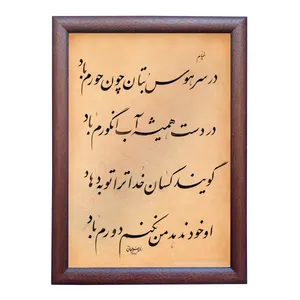 خیام
در سر هوس بتان چون حورم باد
در دست همیشه آب انگورم باد
گویند کسان خدا ترا توبه دهاد
او خود ندهد من نکنم دورم باد